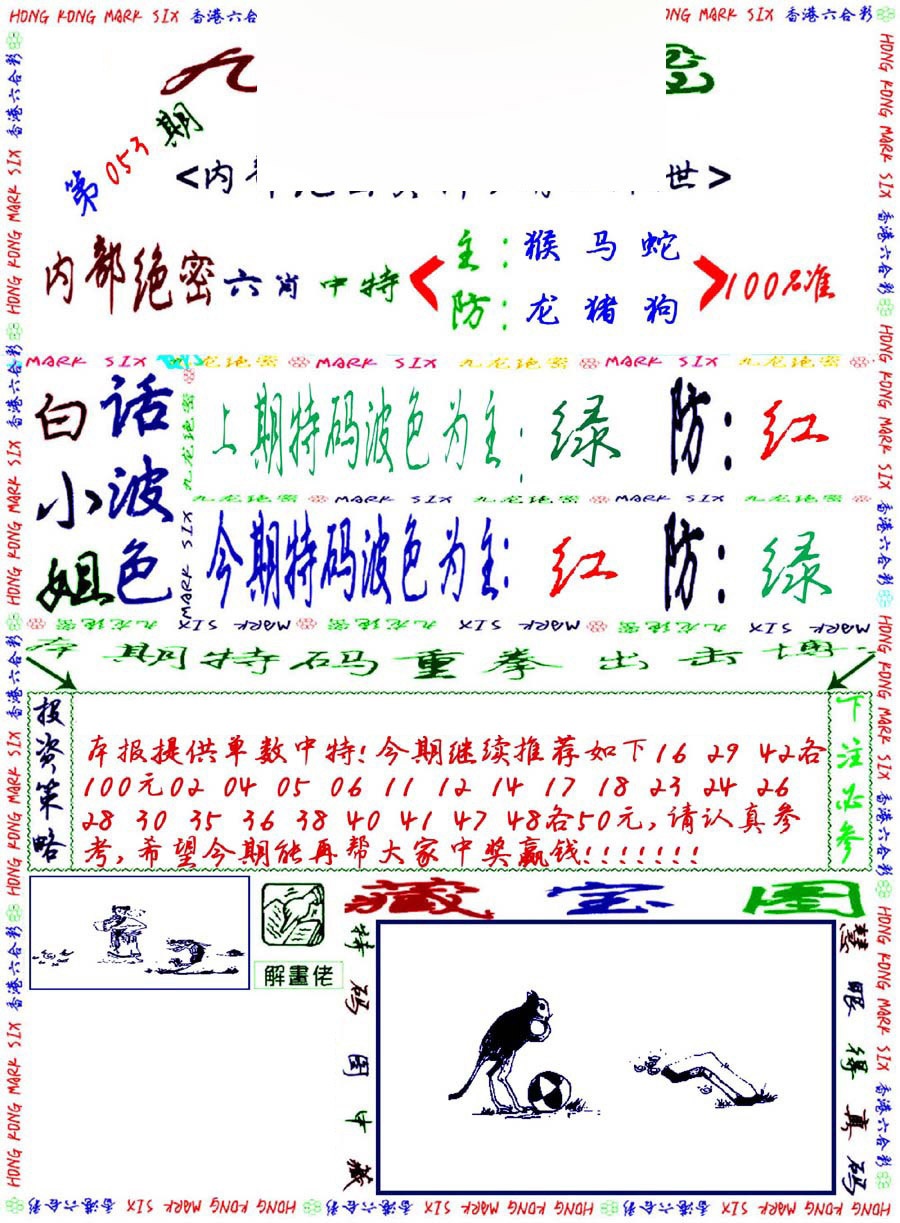 HONG KONG MARK SIX 香港六合彩
第053期
内部绝密六肖中特
主:猴马蛇
防:龙猪狗
100名准
MARK SIX 九龙绝密 MARK SIX 九龙绝密 MARK SIX 九龙绝密
白话
小波
姐色
上期特码波色为主:绿 防:红
九龙绝密 MARK SIX 九龙绝密 MARK SIX 九龙绝密
今期特码波色为主:红 防:绿
MARK SIX 九龙绝密 MARK SIX 九龙绝密 MARK SIX 九龙绝密
期特码重拳出击
投资策略
本报提供单数中特!今期继续推荐如下16 29 42各
100元02 04 05 06 11 12 14 17 18 23 24 26
28 30 35 36 38 40 41 47 48各50元,请认真参
考,希望今期能再帮大家中奖赢钱!!!!!!!
下注必参
解畫佬
藏宝图
特码图中藏
慧眼得真码
HONG KONG MARK SIX 香港六合彩 HONG KONG MARK SIX 香港六合彩 HONG KONG MARK SIX 香港六合彩